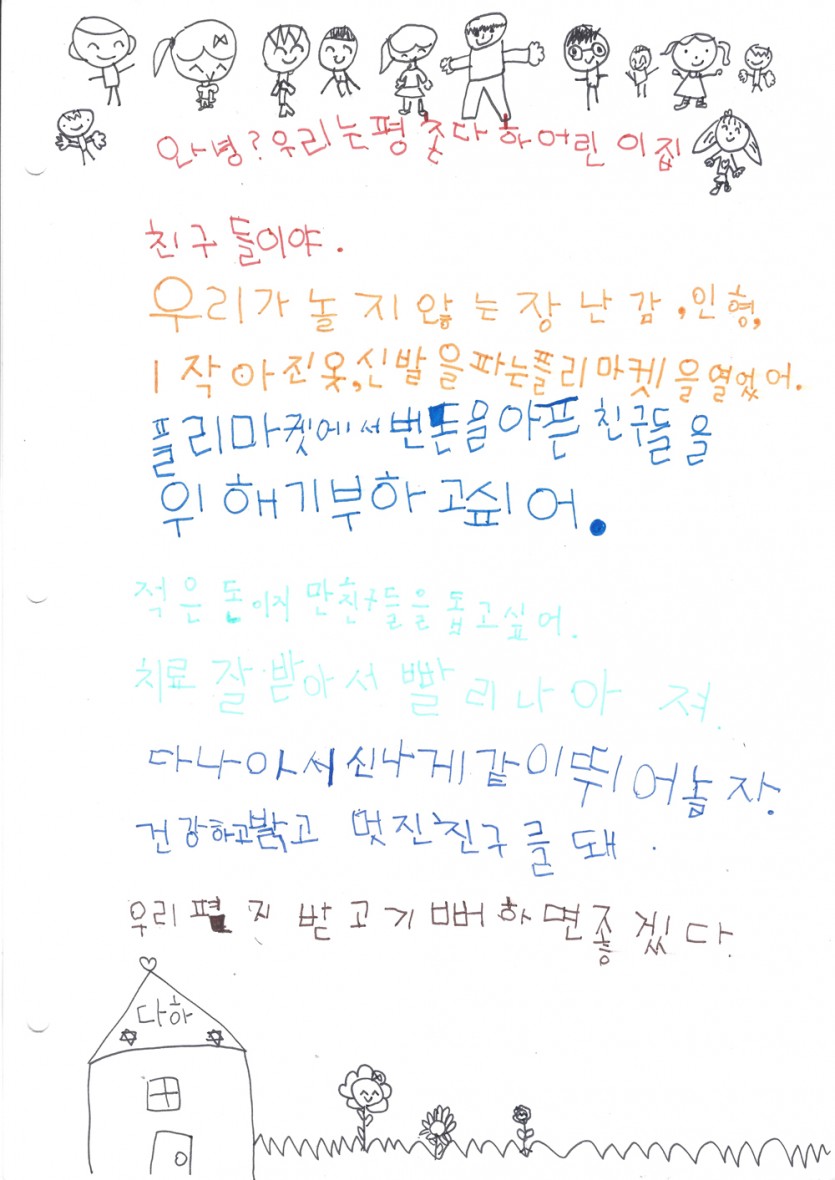 안녕? 우리는 평촛다하어린이집
친구들이야.
우리가 놀지않는 장난감, 인형,
작아진옷,신발을파는플리마켓을열었어.
플리마켓에서번돈을아픈친구들을
위해기부하고싶어.
적은돈이지만친구들을돕고싶어.
치료잘받아서빨리나아져.
다나아서신나게같이뛰어놀자.
건강하고밝고 멋진친구를돼.
우리편지받고기뻐하면좋겠다.
다하